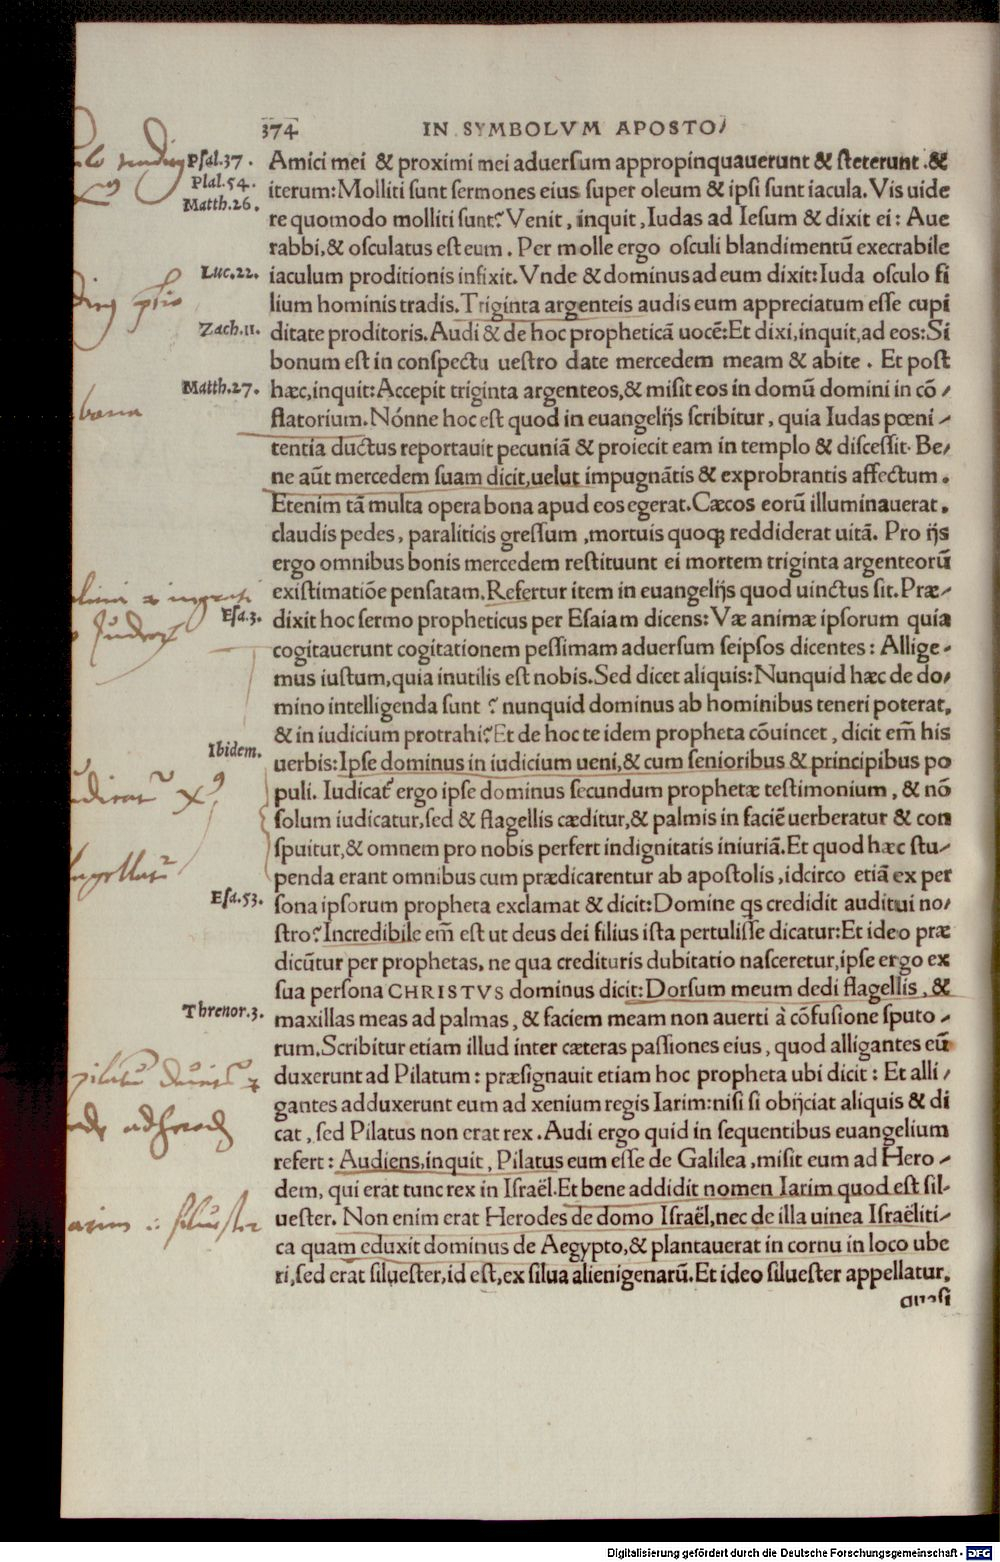 374 IN SYMBOLVM APOSTO/
Psal.37. Amici mei & proximi mei aduersum appropinquauerunt & steterunt. &
Plal.54. iterum: Molliti sunt sermones eius super oleum & ipsi sunt iacula. Vis uide
Matth.26. re quomodo molliti sunt? Venit, inquit, Iudas ad Iesum & dixit ei: Aue
rabbi, & osculatus est eum. Per molle ergo osculi blandimentũ execrabile
Luc.22. iaculum proditionis infixit. Vnde & dominus ad eum dixit: Iuda osculo fi
lium hominis tradis. Triginta argenteis audis eum appreciatum esse cupi
Zach.11. ditate proditoris. Audi & de hoc propheticã uocẽ: Et dixi, inquit, ad eos: Si
bonum est in conspectu uestro date mercedem meam & abite. Et post
Matth.27. hæc, inquit: Accepit triginta argenteos, & misit eos in domũ domini in cõ/
flatorium. Nónne hoc est quod in euangelijs scribitur, quia Iudas pœni-
tentia ductus reportauit pecuniã & proiecit eam in templo & discessit. Be/
ne aũt mercedem suam dicit, uelut impugnãtis & exprobrantis affectum.
Etenim tã multa opera bona apud eos egerat. Cæcos eorũ illuminauerat,
claudis pedes, paraliticis gressum, mortuis quoqꝫ reddiderat uitã. Pro ijs
ergo omnibus bonis mercedem restituunt ei mortem triginta argenteorũ
existimatiõe pensatam. Refertur item in euangelijs quod uinctus sit. Præ-
Esa.3. dixit hoc sermo propheticus per Esaiam dicens: Væ animæ ipsorum quia
cogitauerunt cogitationem pessimam aduersum seipsos dicentes: Allige-
mus iustum, quia inutilis est nobis. Sed dicet aliquis: Nunquid hæc de do/
mino intelligenda sunt? nunquid dominus ab hominibus teneri poterat,
& in iudicium protrahi? Et de hoc te idem propheta cõuincet, dicit em̃ his
Ibidem. uerbis: Ipse dominus in iudicium ueni, & cum senioribus & principibus po
puli. Iudicat ergo ipse dominus secundum prophetæ testimonium, & nõ
solum iudicatur, sed & flagellis cæditur, & palmis in faciẽ uerberatur & con
spuitur, & omnem pro nobis perfert indignitatis iniuriã. Et quod hæc stu-
penda erant omnibus cum prædicarentur ab apostolis, idcirco etiã ex per
Esa.53. sona ipsorum propheta exclamat & dicit: Domine qs credidit auditui no/
stro? Incredibile em̃ est ut deus dei filius ista pertulisse dicatur: Et ideo præ
dicũtur per prophetas, ne qua credituris dubitatio nasceretur, ipse ergo ex
sua persona CHRISTVS dominus dicit: Dorsum meum dedi flagellis, &
Threnor.3. maxillas meas ad palmas, & faciem meam non auerti à cõfusione sputo-
rum. Scribitur etiam illud inter cæteras passiones eius, quod alligantes eũ
duxerunt ad Pilatum: præsignauit etiam hoc propheta ubi dicit: Et alli/
gantes adduxerunt eum ad xenium regis Iarim: nisi si obijciat aliquis & di
cat, sed Pilatus non erat rex. Audi ergo quid in sequentibus euangelium
refert: Audiens, inquit, Pilatus eum esse de Galilea, misit eum ad Hero-
dem, qui erat tunc rex in Israël. Et bene addidit nomen Iarim quod est sil-
uester. Non enim erat Herodes de domo Israël, nec de illa uinea Israëliti-
ca quam eduxit dominus de Aegypto, & plantauerat in cornu in loco ube
ri, sed erat siluester, id est, ex silua alienigenarũ. Et ideo siluester appellatur,
quasi
Digitalisierung gefördert durch die Deutsche Forschungsgemeinschaft - DFG